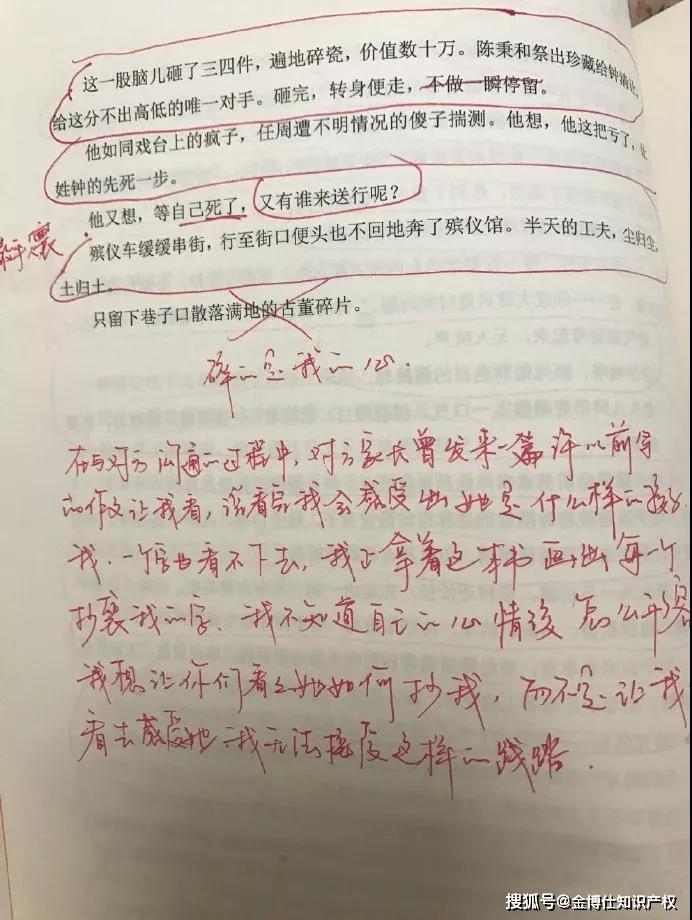 这一股脑儿砸了三四件，遍地碎瓷，价值数十万。陈秉和祭出珍藏给钟
给这分不出高低的唯一对手。砸完，转身便走，不做一瞬停留。
他如同戏台上的疯子，任周遭不明情况的傻子揣测。他想，他这把亏了，让
姓钟的先死一步。
他又想，等自己死了，又有谁来送行呢？
殡仪车缓缓串街，行至街口便头也不回地奔了殡仪馆。半天的工夫，尘归尘，
土归土。
只留下巷子口散落满地的古董碎片。
碎的是我的心.
在与对方沟通的过程中，对方家长曾发来一篇许以前写
的作文让我看，说看后我会感受出她是什么样的孩子
我，一个字也看不下去，我正拿着这本书画出每一个
抄袭我的字. 我不知道自己的心情该怎么平复
我想让你们看看她如何抄我，而不是让我
看去感受她 我无法接受这样的践踏.
搜狐号@金博仕知识产权